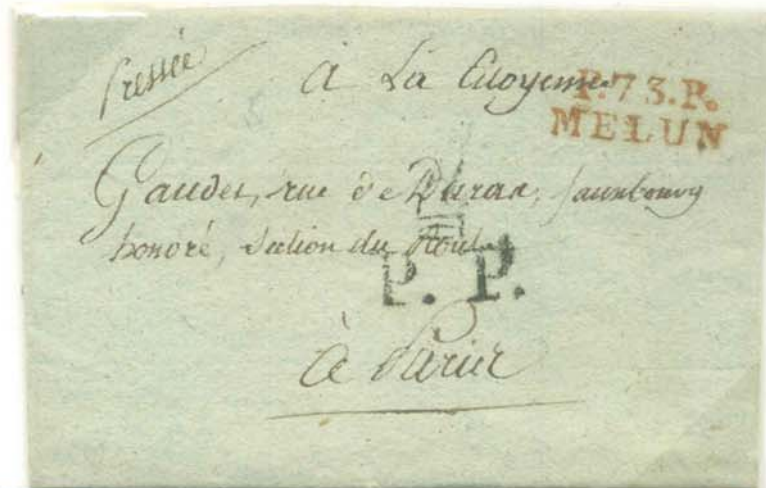 Pressée
à La Citoyenne
P.73.P.
MELUN
Gaudet, rue de Duras, fauxbourg
honoré, Section du Roule
P. P.
à Paris